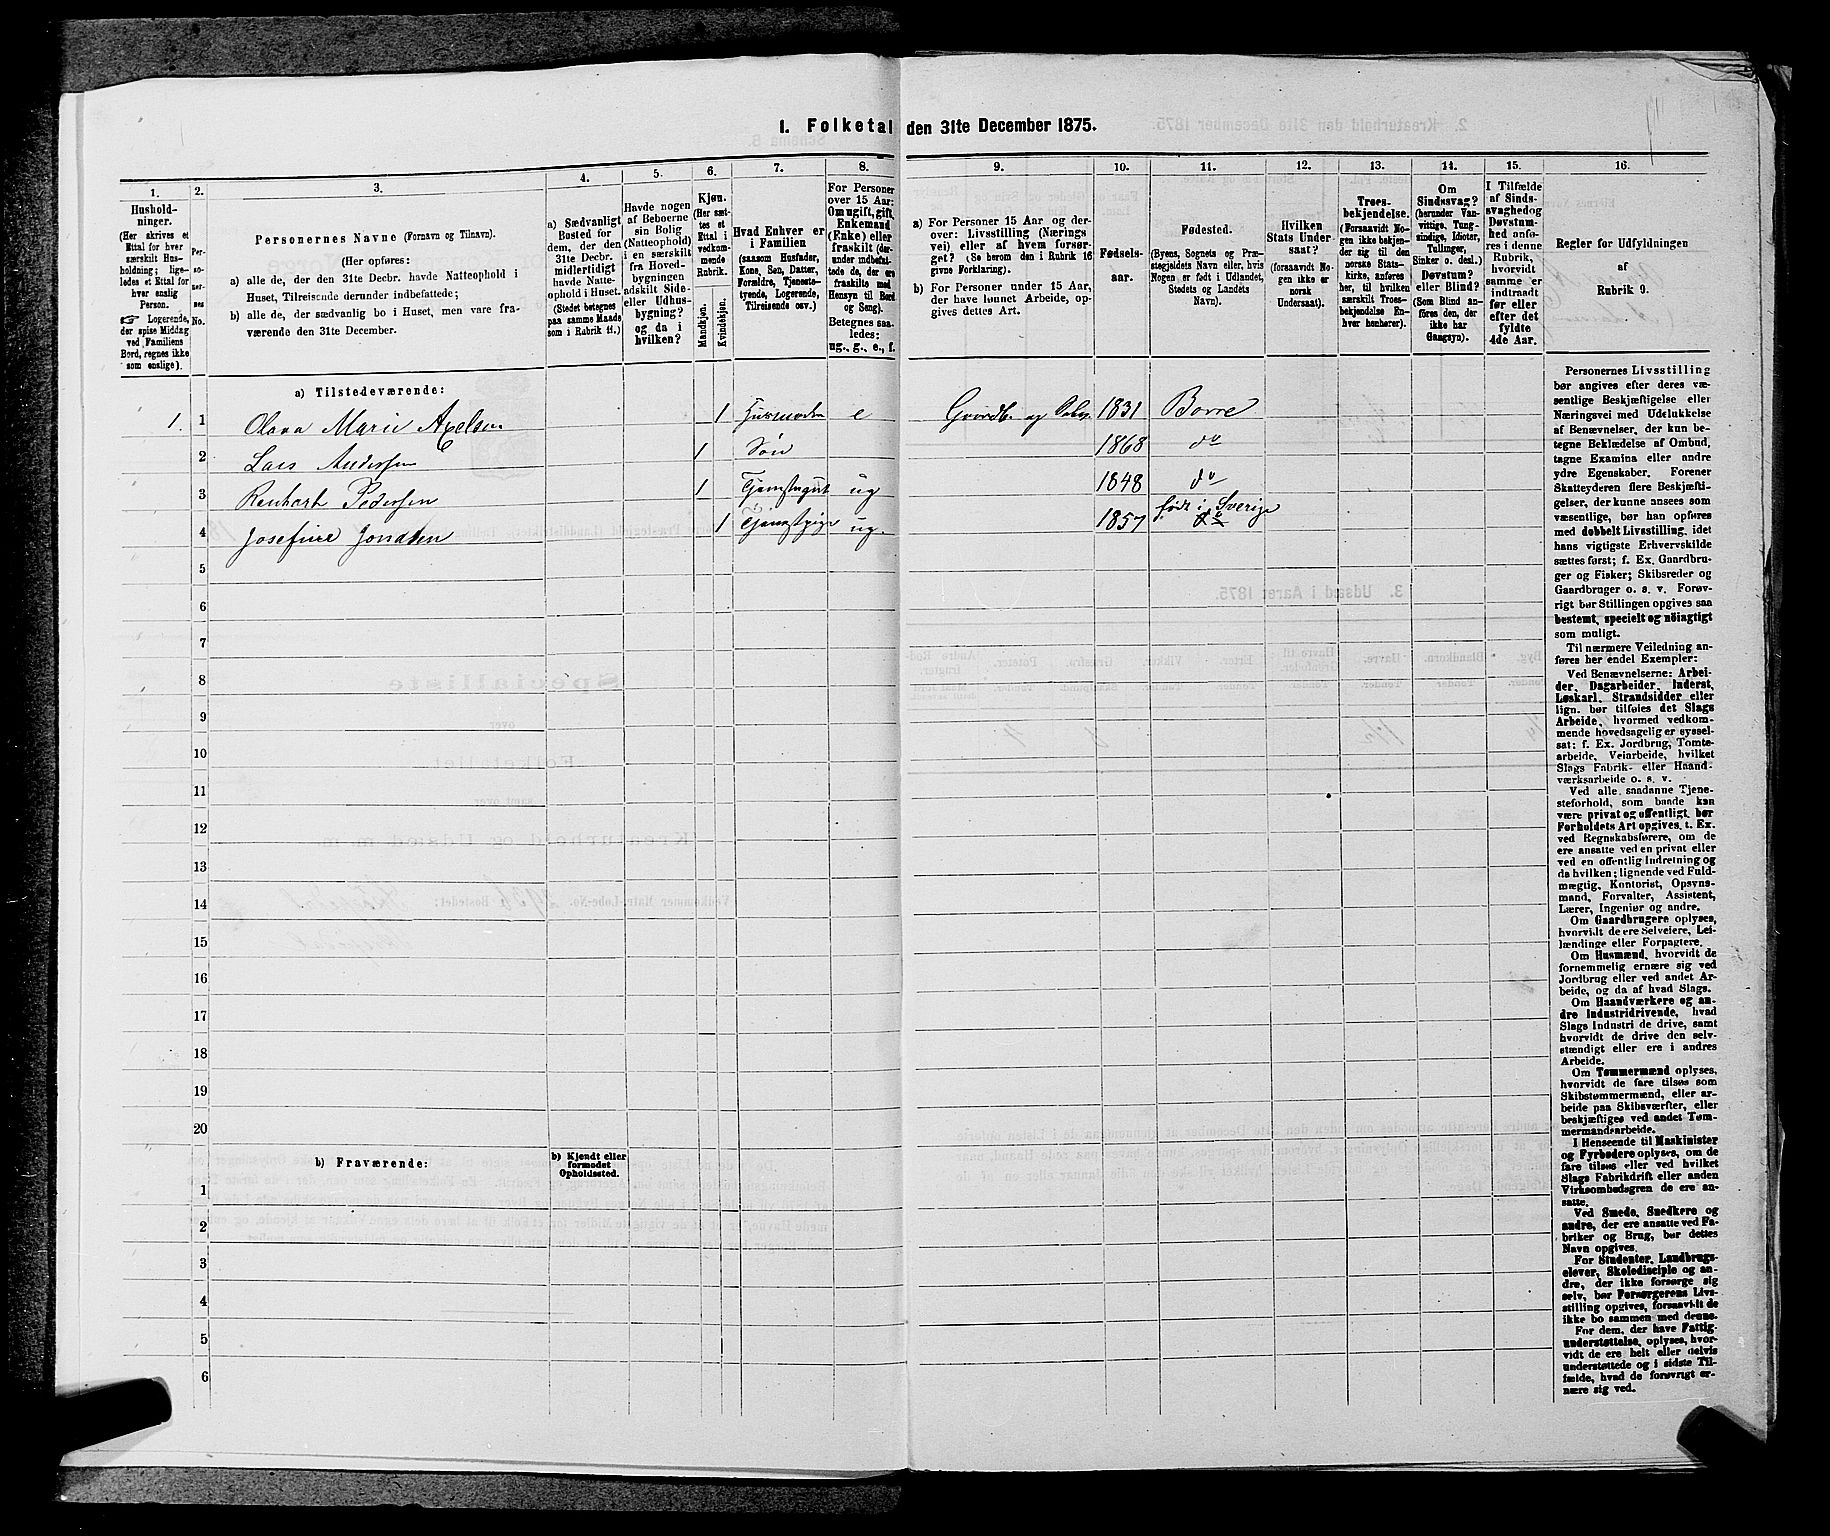 1. Folketal den 31te December 1875.
1.
Hushold-
ninger.
(Her skrives et
Ettal for hver
særskilt Hus-
holdning; lige-
ledes et Ettal for
hver enslig
Person.
Logerende,
der spise Middag
ved Familiens
Bord, regnes ikke
som enslige).
2.
Per-
so-
ner-
nes
No.
3.
Personernes Navne (Fornavn og Tilnavn).
(Her opføres:
a) alle de, der den 31te Decbr. havde Natteophold i
Huset, Tilreisende derunder indbefattede;
b) alle de, der sædvanlig bo i Huset, men vare fra-
værende den 31te December.
4.
a) Sædvanligt
Bosted for
dem, der den
31te Decbr.
midlertidigt
havde Natte-
ophold i Huset.
(Stedet betegnes
paa samme Maade
som i Rubrik 11.)
5.
Havde nogen
af Beboerne
sin Bolig
(Natteophold)
i en særskilt
fra Hoved-
bygningen
adskilt Side-
eller Udhus-
bygning?
og da i
hvilken?
6.
Kjøn.
(Her sæt-
tes et
Ettal i
vedkom-
mende
Rubrik.
Mandkjøn.
Kvindekjøn.
7.
Hvad Enhver er
i Familien
(saasom Husfader,
Kone, Søn, Datter,
Forældre, Tjeneste-
tyende, Logerende,
Tilreisende osv.)
8.
For Personer
over 15 Aar:
Om ugift, gift,
Enkemand
(Enke) eller
fraskilt (der-
under indbefat-
tede de, der ere
fraskilte med
Hensyn til Bord
og Seng).
Betegnes saa-
ledes:
ug., g., e., f.
9.
a) For Personer 15 Aar og der-
over: Livsstilling (Nærings
vei) eller af hvem forsør-
get? (Se herom den i Rubrik 16
givne Forklaring).
b) For Personer under 15 Aar,
der have lønnet Arbeide, op-
gives dettes Art.
10.
Fødsels-
aar.
11.
Fødested.
(Byens, Sognets og Præ-
stegjeldets Navn eller, hvis
Nogen er født i Udlandet,
Stedets og Landets
Navn).
12.
Hvilken
Stats Under-
saat?
(forsaavidt No-
gen ikke er
norsk
Undersaat).
13.
Troes-
bekjendelse.
(Forsaavidt No-
gen ikke bekjen-
der sig til den
norske Stats-
kirke, anføres
her, til hvilken
særskilt Troes-
bekjendelse En-
hver henhører).
14.
Om
Sindssvag?
(herunder Van-
vittige, Tung-
sindige, Idioter,
Tullinger,
Sinker o. desl.)
Døvstum?
eller Blind?
(Som Blind an-
føres den, der
ikke har
Gangsyn).
15.
I Tilfælde
af Sinds-
svaghed og
Døvstum-
hed anfø-
res i denne
Rubrik,
hvorvidt
samme er
indtraadt
før eller
efter det
fyldte
4de Aar.
16.
Regler for Udfyldningen
af
Rubrik 9.
a) Tilstedeværende:
1. 1 Olava Marie Axelsen 1 Husmoder e Gaardbr. og 1831 Borre
2 Lars Andersen 1 Søn 1868 do
3 Renhart Pedersen 1 Tjenstegut ug 1848 do
4 Josefine Jondsen 1 Tjenestpige ug. 1857 født i Sverige
5
6
7
8
9
10
11
12
13
14
15
16
17
18
19
20
b) Fraværende:
b) Kjendt eller
formodet
Opholdssted.
1
2
3
4
5
6
Personernes Livsstilling
bør angives efter deres væ-
sentlige Beskjæftigelse eller
Næringsvei med Udelukkelse
af Benævnelser, der kun be-
tegne Beklædelse af Ombud,
tagne Examina eller andre
ydre Egenskaber. Forener
Skatteyderen flere Beskjæfti-
gelser, der kunne ansees som
væsentlige, bør han opføres
med dobbelt Livsstilling, idet
hans vigtigste Erhvervskilde
sættes først; f. Ex. Gaardbru-
ger og Fisker; Skibsreder og
Gaardbruger o. s. v. Forøv-
rigt bør Stillingen opgives saa
bestemt, specielt og nøiagtigt
som muligt.
Til nærmere Veiledning an-
føres her endel Exempler:
Ved Benævnelserne: Arbei-
der, Dagarbeider, Inderst,
Løskarl, Strandsidder eller
lign. bør tilføies det Slags
Arbeide, hvormed vedkom-
mende hovedsagelig er syssel-
sat: f. Ex. Jordbrug, Tomte-
arbeide, Veiarbeide, hvilket
Slags Fabrik- eller Haand-
værksarbeide o. s. v.
Ved alle saadanne Tjene-
steforhold, som baade kan
være privat og offentligt, bør
Forholdets Art opgives, t. Ex.
ved Regnskabsførere, om de
ere ansatte ved en privat eller
ved en offentlig Indretning og
da hvilken; lignende ved Fuld-
mægtig, Kontorist, Opsyns-
mand, Forvalter, Assistent,
Lærer, Ingeniør og andre.
Om Gaardbrugere oplyses,
hvorvidt de ere Selveiere, Lei-
lændinge eller Forpagtere.
Om Husmænd, hvorvidt de
fornemmelig ernære sig ved
Jordbrug eller ved andet Ar-
beide, og da af hvad Slags.
Om Haandværkere og an-
dre Industridrivende, hvad
Slags Industri de drive, samt
hvorvidt de drive den selv-
stændigt eller ere i andres
Arbeide.
Om Tømmermænd oplyses,
hvorvidt de fare tilsøs som
Skibstømmermænd, eller ar-
beide paa Skibsværfter, eller
beskjæftiges ved andet Tøm-
mermandsarbeide.
I Henseende til Maskinister
og Fyrbødere oplyses, om de
fare tilsøs eller ved hvilket
Slags Fabrikdrift eller anden
Virksomhedsgren de ere an-
satte.
Ved Smede, Snedkere og
andre, der ere ansatte ved Fa-
briker og Brug, bør dettes
Navn opgives.
For Studenter, Landbrugs-
elever, Skoledisciple og an-
dre, der ikke forsørge sig
selv, bør Forsørgerens Livs-
stilling opgives, forsaavidt de
ikke bo sammen med denne.
For dem, der have Fattig-
understøttelse, oplyses, hvor-
vidt de ere helt eller delvis
understøttede og i sidste Til-
fælde, hvad de forøvrigt er-
nære sig ved.